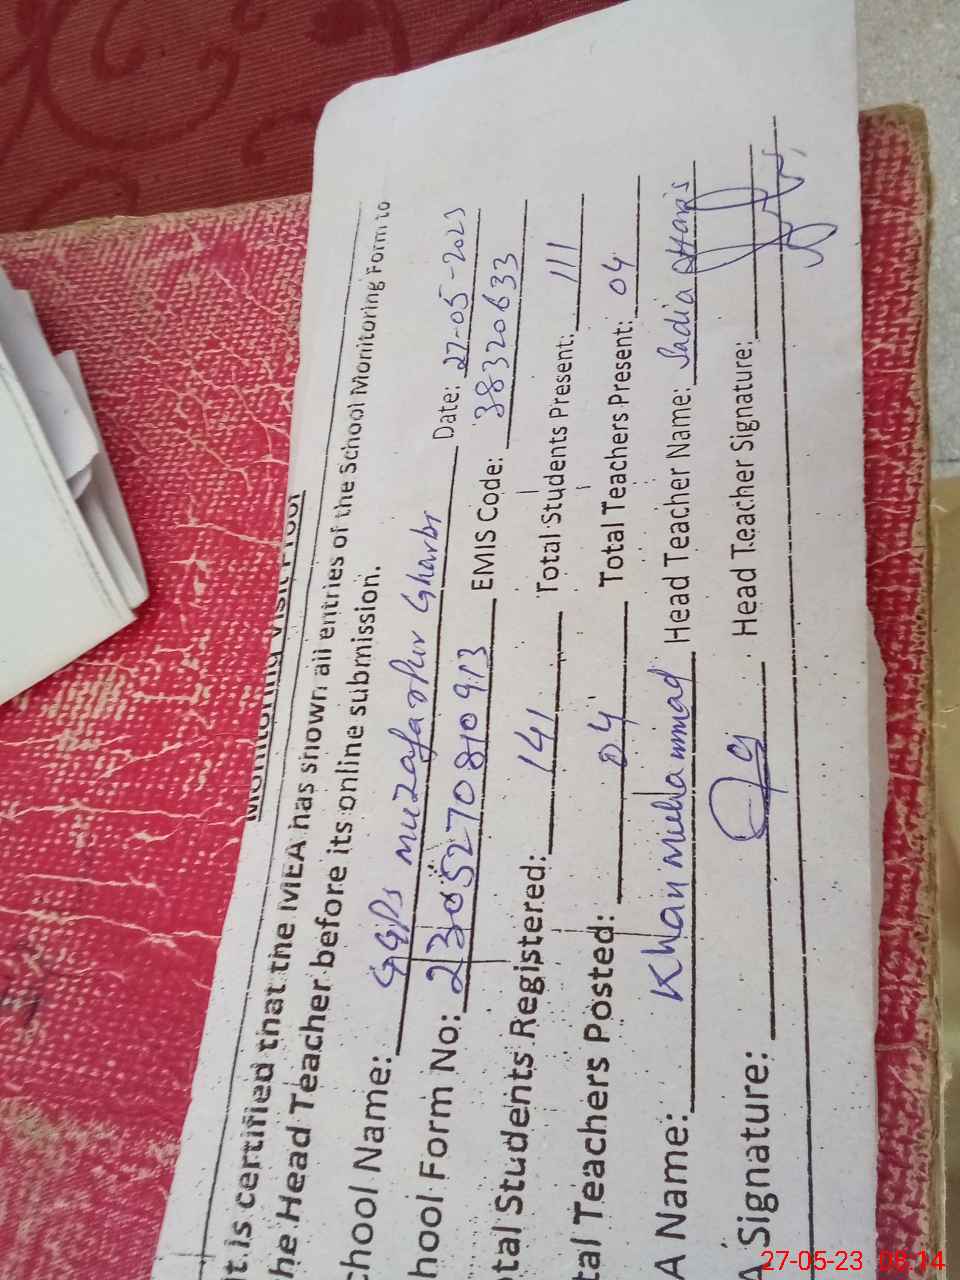 Monitoring Visit Proof
t is certified that the MEA has shown all entries of the School Monitoring Form to
he Head Teacher before its online submission.
chool Name: GGPS muzafarhur Gharbi Date: 27-05-2023
hool Form No: 230527080913 EMIS Code: 38320633
otal Students Registered: 141 Total Students Present: 111
tal Teachers Posted: 04 Total Teachers Present: 04
A Name: Khan Muhammad Head Teacher Name: Sadia Haris
A Signature: Head Teacher Signature:
27-05-23 08:14